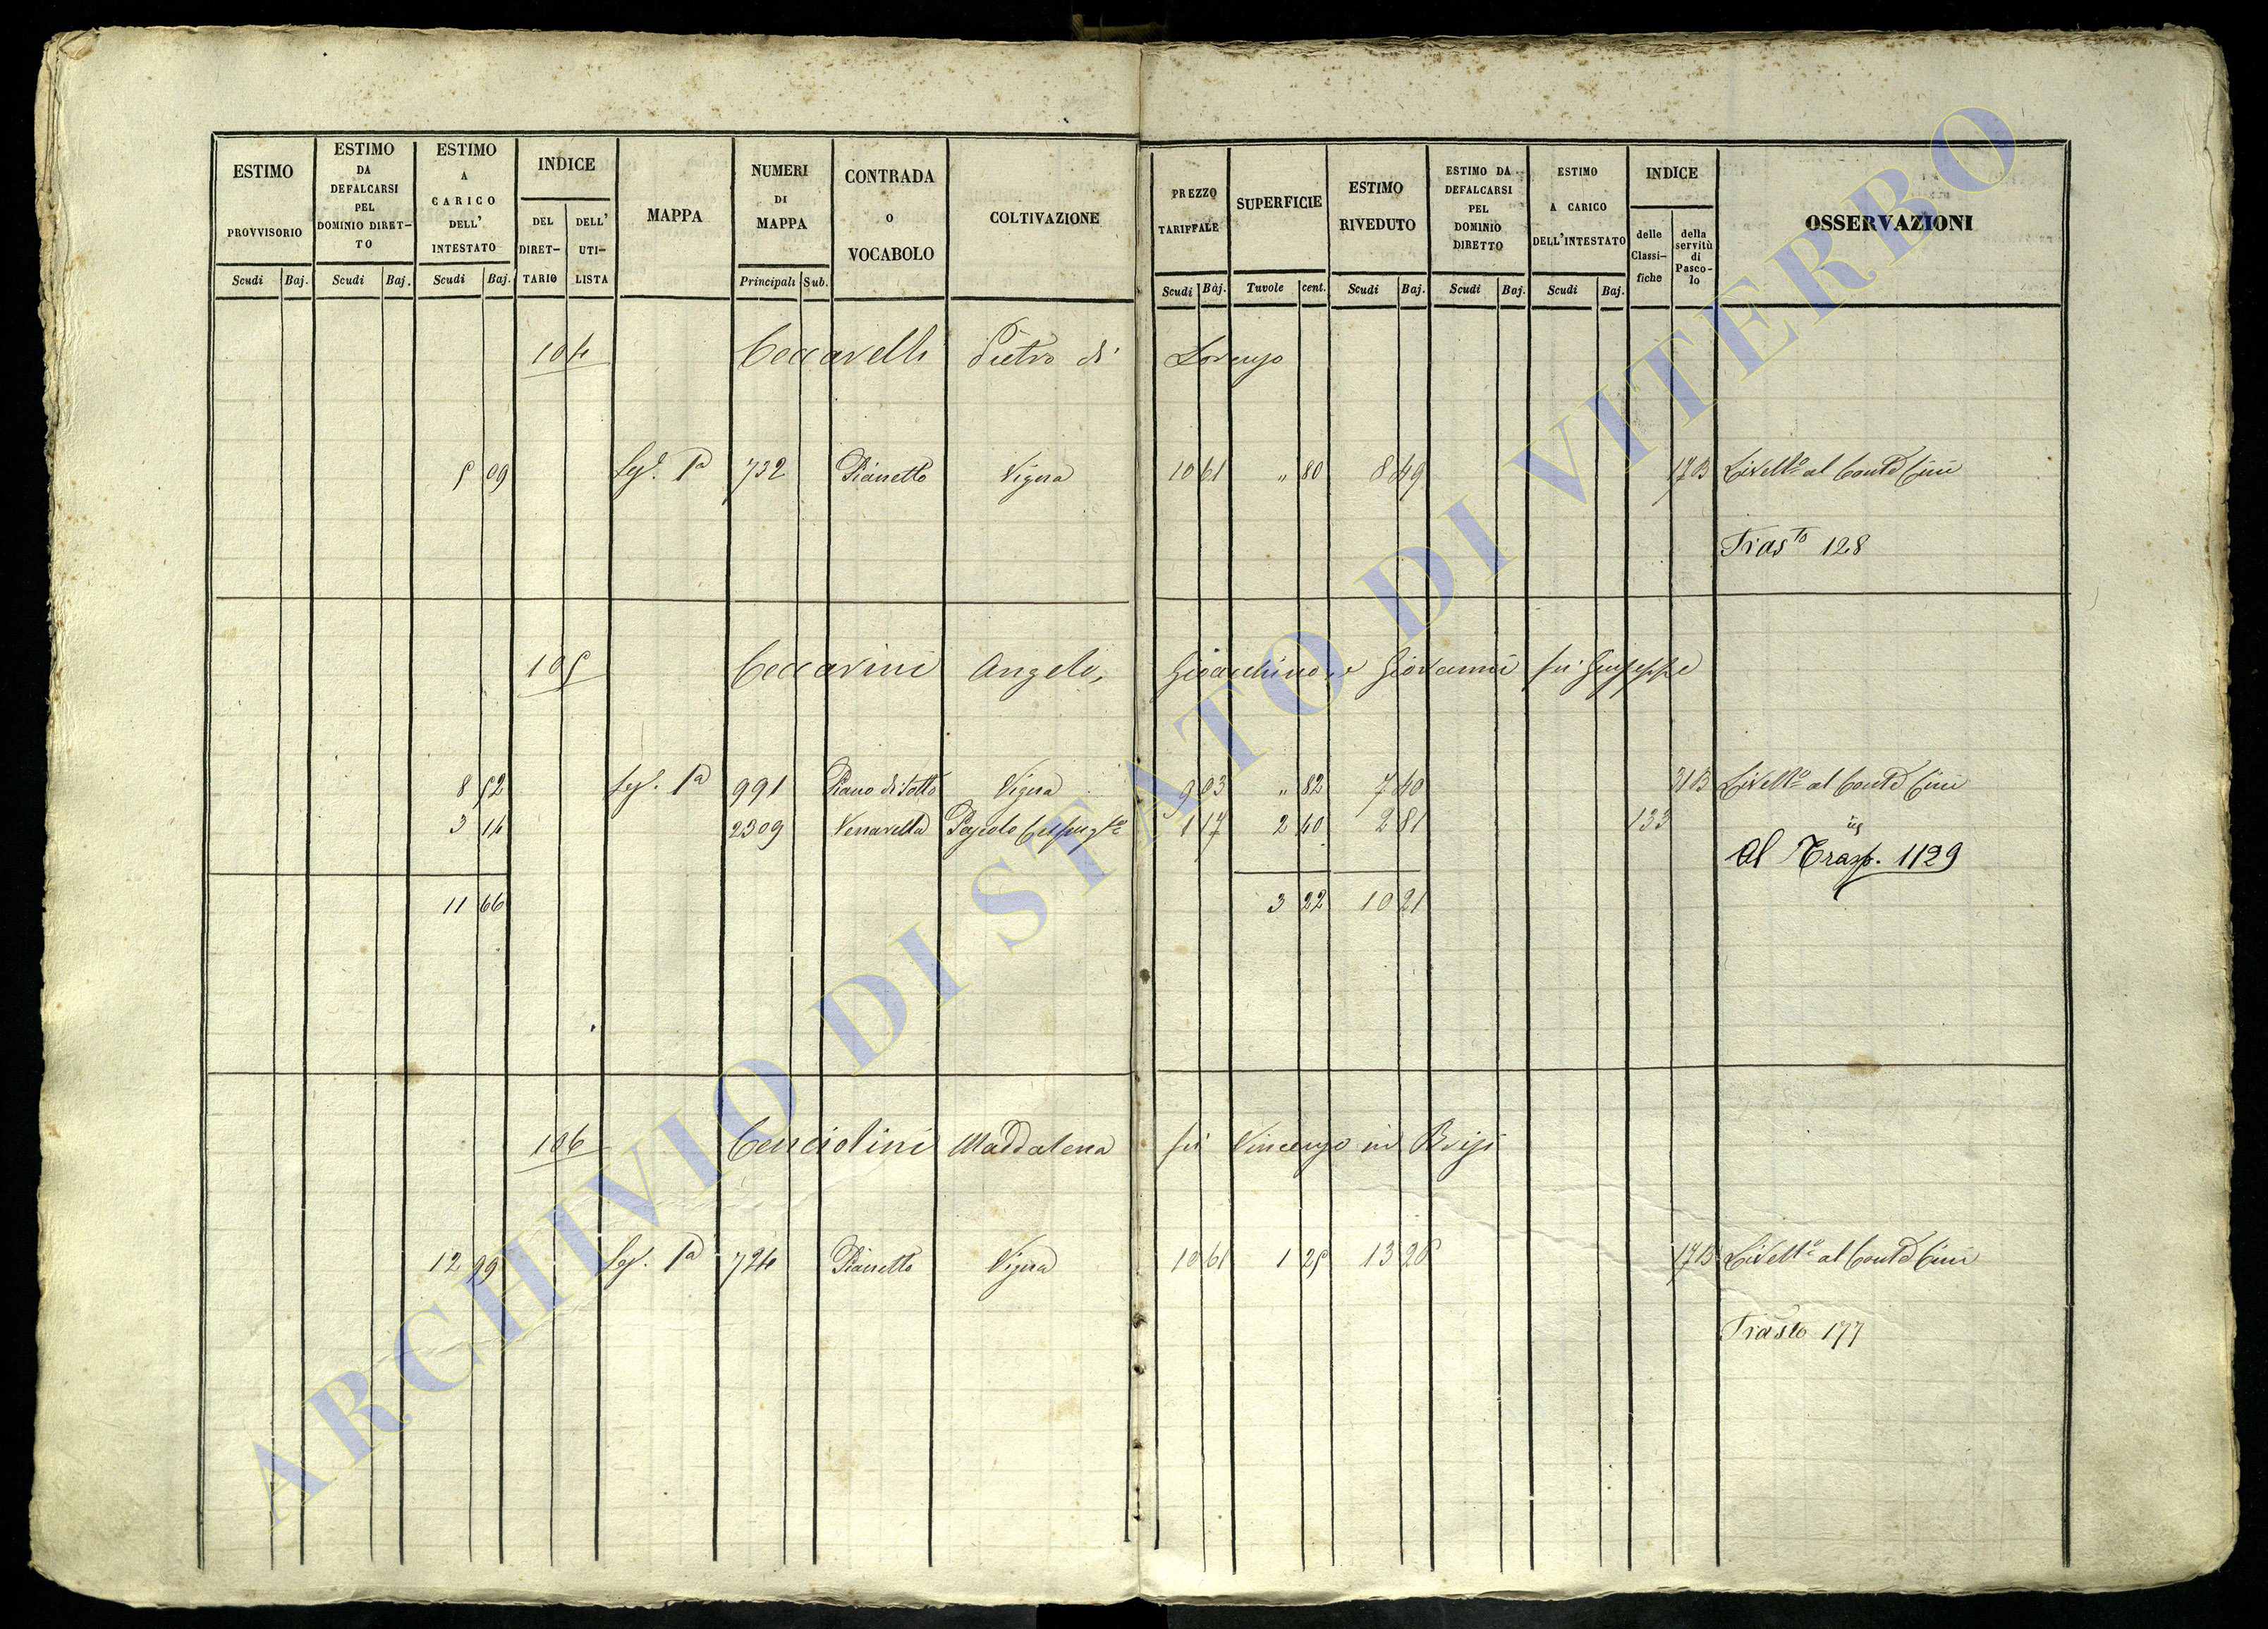 ESTIMO PROVVISORIO Scudi Baj.
ESTIMO DA DEFALCARSI PEL DOMINIO DIRET-TO Scudi Baj.
ESTIMO A CARICO DELL' INTESTATO Scudi Baj.
INDICE DEL DIRET-TARIO DELL' UTI-LISTA
MAPPA
NUMERI DI MAPPA Principali Sub.
CONTRADA O VOCABOLO
COLTIVAZIONE
PREZZO TARIFFALE Scudi Baj.
SUPERFICIE Tavole cent.
ESTIMO RIVEDUTO Scudi Baj.
ESTIMO DA DEFALCARSI PEL DOMINIO DIRETTO Scudi Baj.
ESTIMO A CARICO DELL'INTESTATO Scudi Baj.
INDICE delle Classi-fiche della servitù di Pasco-lo
OSSERVAZIONI
104 Ceccarelli Pietro di Lorenzo
5 09 Sez. 1a 732 Pianetto Vigna 10 61 " 80 8 49 17B Livello al Conte Cini
Trasto 128
105 Ceccarini Angelo, Gioacchino, e Giovanni fu Giuseppe
8 52 Sez. 1a 991 Piano di Sotto Vigna 9 03 " 82 7 40 31B Livello al Conte Cini
3 14 2309 Vennarella Pascolo Cespugto 1 17 2 40 2 81 133
Al Trasp. 1129
11 66 3 22 10 21
106 Cenciolini Maddalena fu Vincenzo in Brizi
12 99 Sez. 1a 724 Pianetto Vigna 10 61 1 25 13 26 17B Livello al Conte Cini
Trasto 177
ARCHIVIO DI STATO DI VITERBO